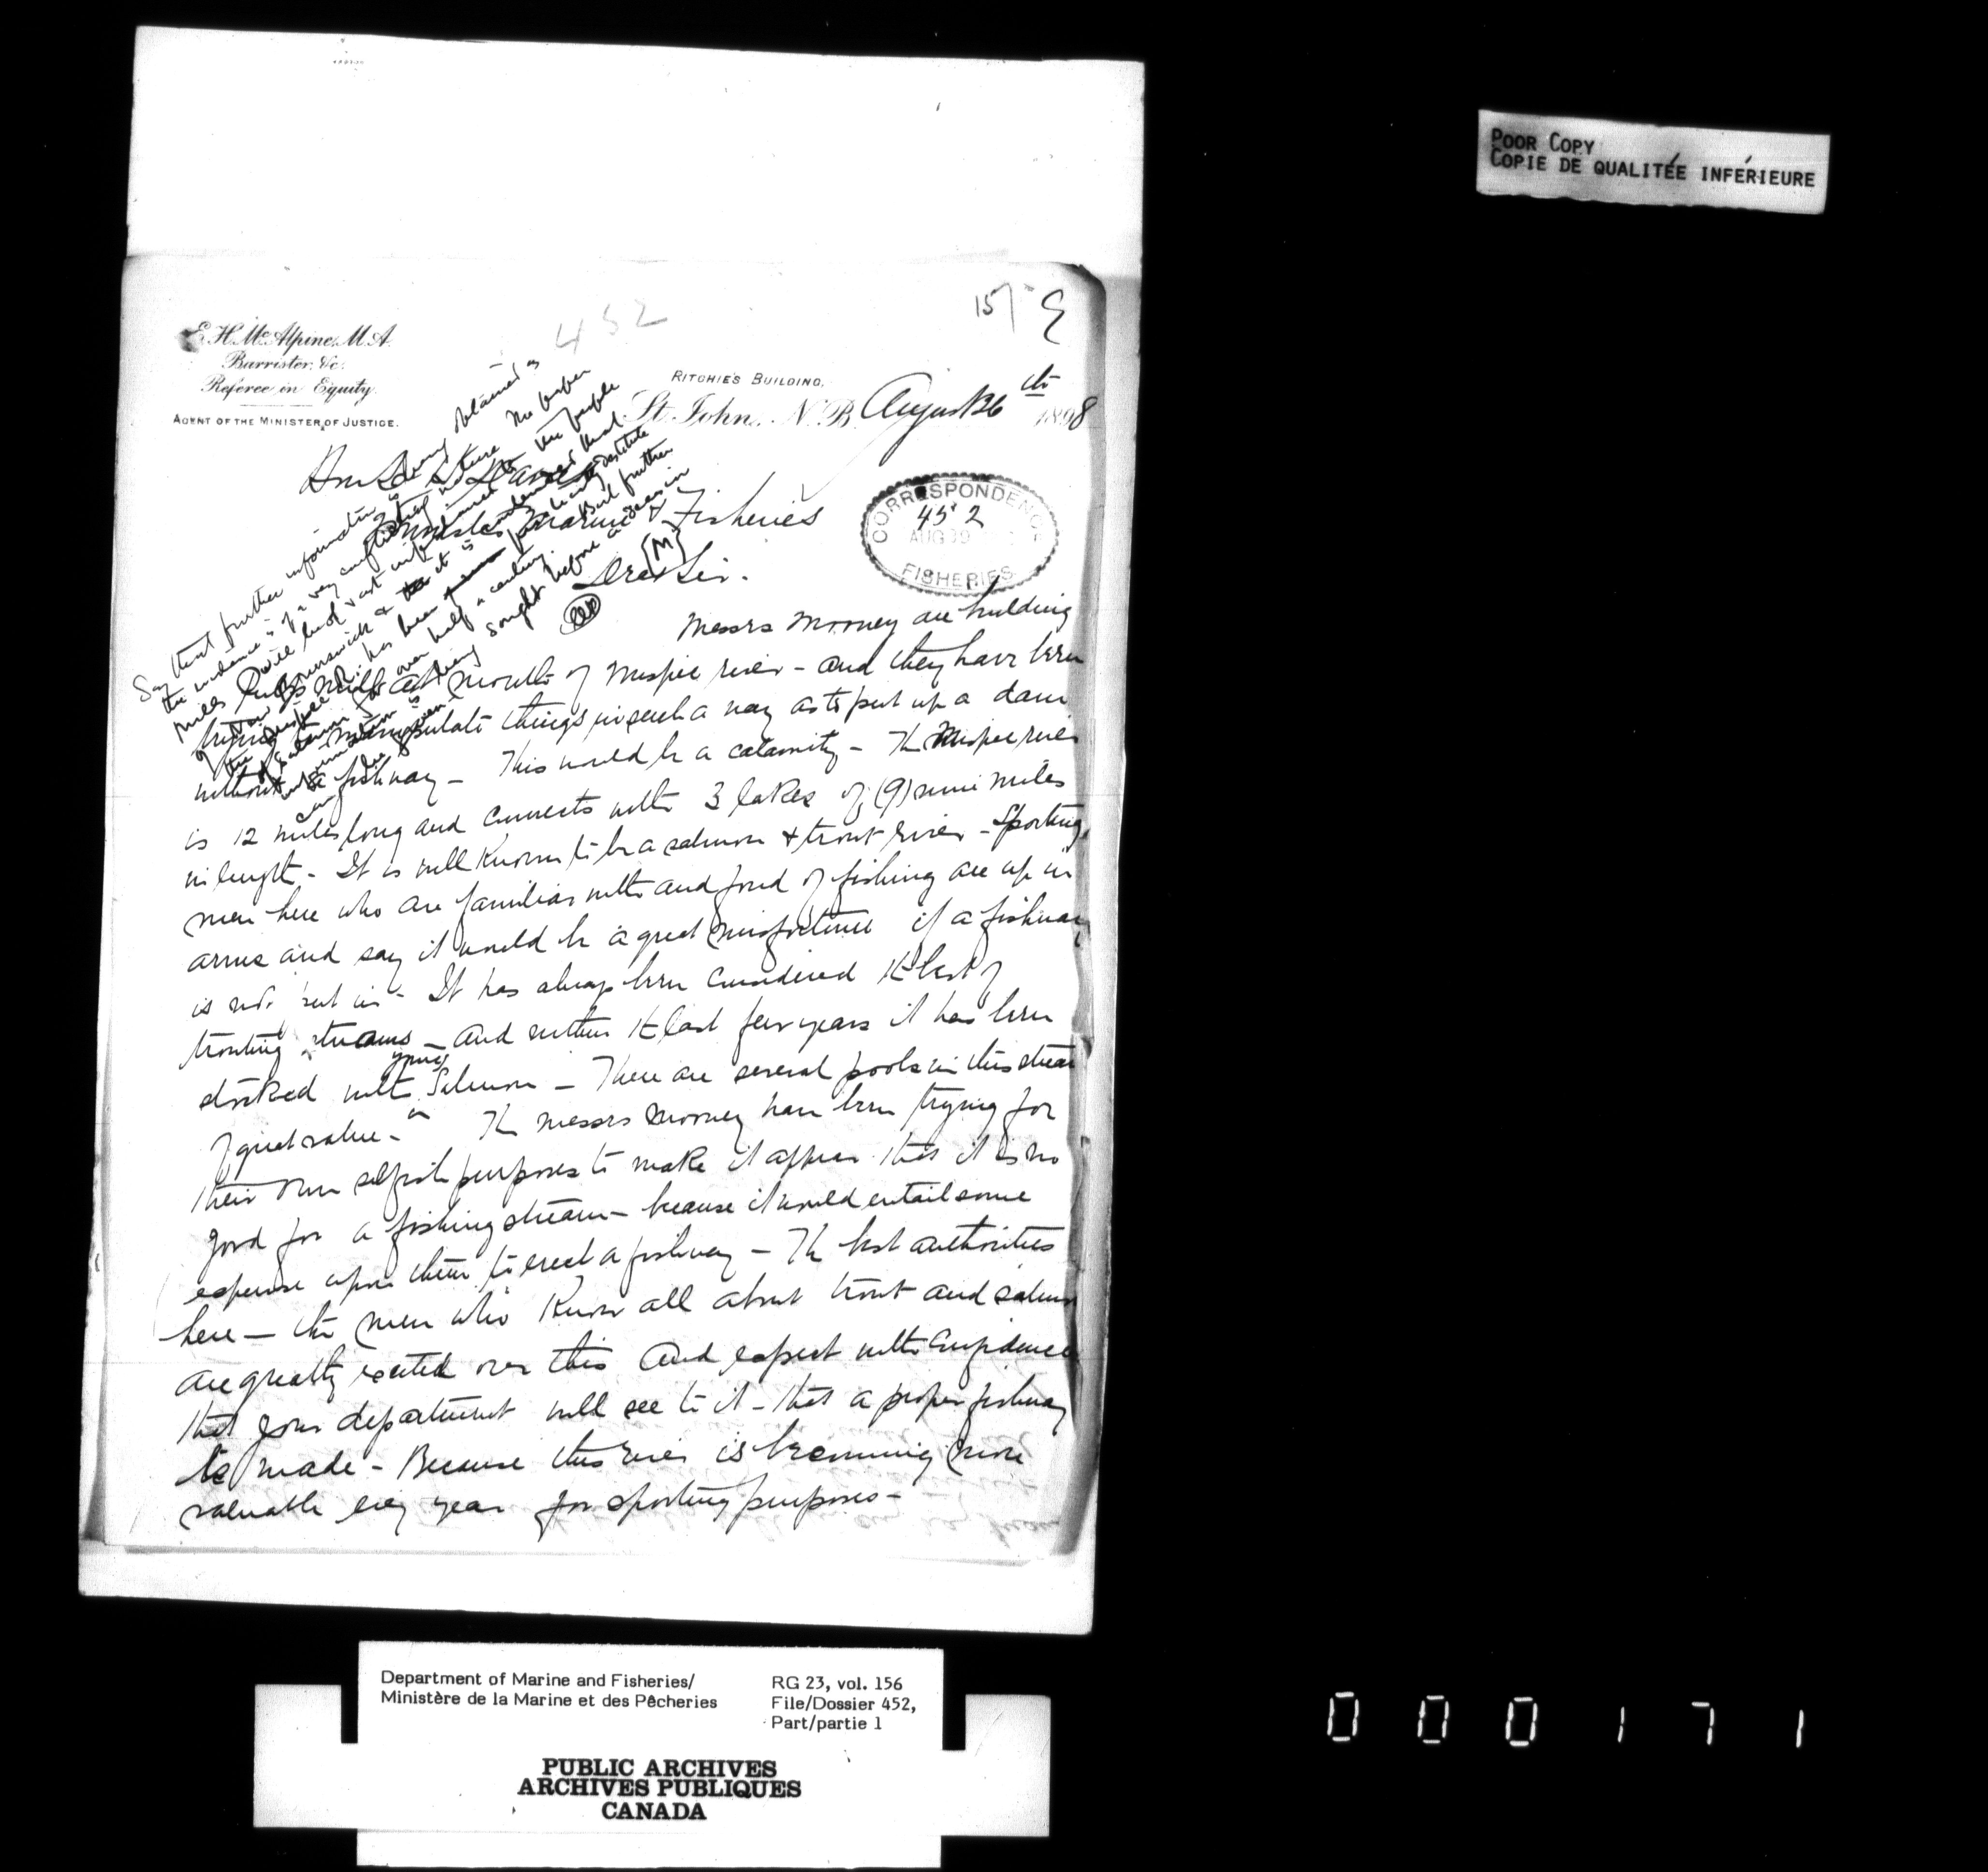 POOR COPY
COPIE DE QUALITÉE INFÉRIEURE
452
157
E. H. McAlpine, M.A.
Barrister, &c.
Referee in Equity.
AGENT OF THE MINISTER OF JUSTICE.
RITCHIE'S BUILDING,
St. John, N.B. August 26th 1898
Hon
Minister Marine & Fisheries
CORRESPONDENCE
452
AUG 30
FISHERIES
Dear Sir.
Say that further information is being obtained as
the evidence is of a very conflicting nature The
mills will be of vast importance to the people
of New Brunswick & it is contended that
the Mispec has been practically destitute
of salmon for over half a century But further
information is being sought before a decision
can be given
Messrs Mooney are building
Pulp mill at mouth of Mispec river - and they have been
trying to manipulate things in such a way as to put up a dam
without a fishway - This would be a calamity - The Mispec river
is 12 miles long and connects with 3 lakes of (9) nine miles
in length - It is well known to be a salmon & trout river - Sporting
men here who are familiar with and fond of fishing are up in
arms and say it would be a great misfortune if a fishway
is not put in - It has always been considered the best of
trouting streams - and within the last few years it has been
stocked with young Salmon - There are several pools in this stream
of great value - The Messrs Mooney have been trying for
their own selfish purposes to make it appear that it is no
good for a fishing stream - because it would entail some
expense upon them to erect a fishway - The best authorities
here - the men who know all about trout and salmon
are greatly excited over this and expect with confidence
that your department will see to it - that a proper fishway
be made - Because this river is becoming more
valuable every year for sporting purposes -
Department of Marine and Fisheries/
Ministère de la Marine et des Pêcheries
RG 23, vol. 156
File/Dossier 452,
Part/partie 1
PUBLIC ARCHIVES
ARCHIVES PUBLIQUES
CANADA
000171